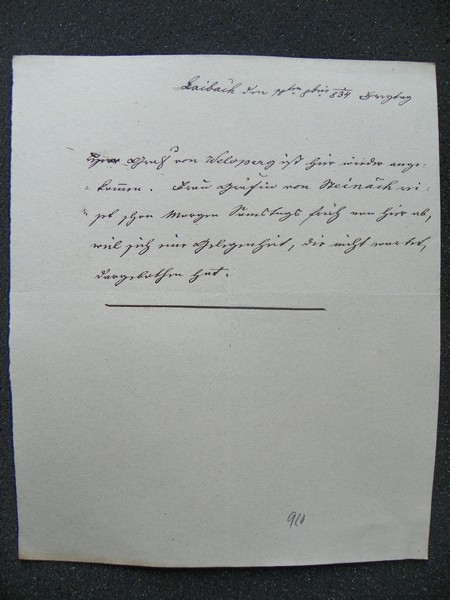 Laibach den 8bris 834 Freytag
Herr Graf von Welsperg ist hier wieder ange-
kommen. Frau Gräfin von Steinach rei-
set schon Morgen Samstags früh von hier ab,
weil sich eine Gelegenheit, die nicht wartet,
dargebothen hat.
910